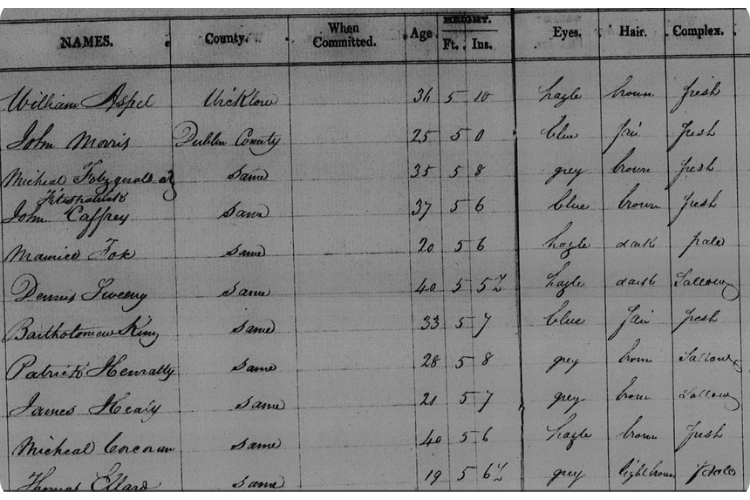 NAMES. County. When Committed. Age HEIGHT. Ft. Ins. Eyes. Hair. Complex.
William Aspel Wicklow 36 5 10 hazle brown fresh
John Morris Dublin County 25 5 0 blue fair fresh
Micheal Fitzgerald same 35 5 8 grey brown fresh
Fitzpatrick
John Caffrey same 37 5 6 blue brown fresh
Maurice Fox same 20 5 6 hazle dark pale
Dennis Sweeny same 40 5 5½ hazle dark Sallow
Bartholomew King same 33 5 7 blue fair fresh
Patrick Henratty same 28 5 8 grey brown Sallow
James Healy same 21 5 7 grey brown Sallow
Micheal Corcoran same 40 5 6 hazle brown fresh
Thomas Ellard same 19 5 6½ grey light brown pale